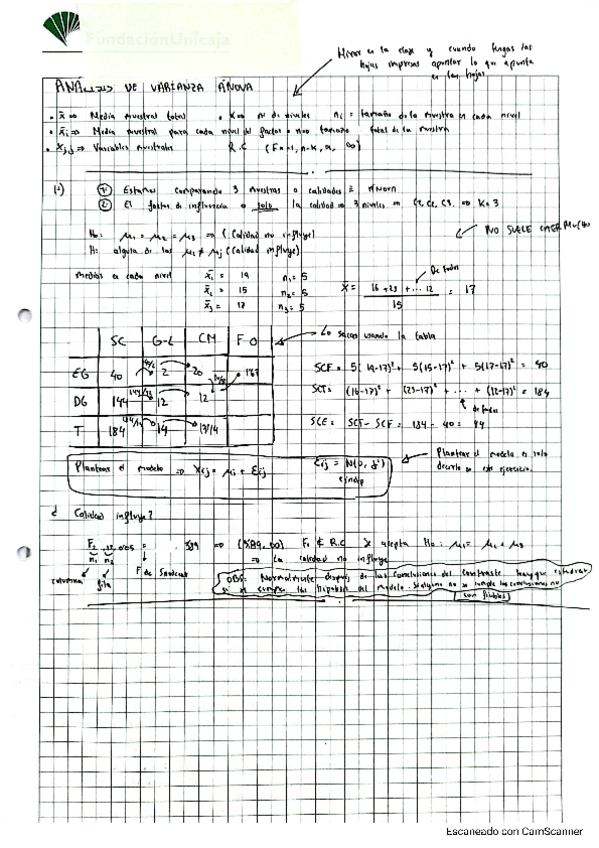 Fundación Unicaja
Mirar en la clase y cuando tengas las
hojas impresas apuntar lo que apunta
en las hojas
ANÁLISIS DE VARIANZA ANOVA
x̄ ⇒ Media muestral total · K ⇒ nº de niveles ni = tamaño de la muestra en cada nivel
x̄i ⇒ Media muestral para cada nivel del factor · n ⇒ tamaño total de la muestra
Xij ⇒ Variables muestrales R.C (F k-1, n-k, α, ∞)
① Estamos comparando 3 muestras o calidades ANOVA
② El factor de influencia solo la calidad ⇒ 3 niveles ⇒ C1, C2, C3 ⇒ K=3
NO SUELE CAER MUCHO
H0: μ1 = μ2 = μ3 ⇒ (Calidad no influye)
H1: alguna de las μi ≠ μj (Calidad influye)
medias en cada nivel
x̄1 = 19 n1 = 5
x̄2 = 15 n2 = 5
x̄3 = 17 n3 = 5
x̄ = 16 + 23 + ... 12 / 15 = 17
De todos
SC G-L CM F-O
Lo sacas usando la tabla
EG 40 2 20 1'67
DG 144 12 12
T 184 14
SCF = 5(19-17)² + 5(15-17)² + 5(17-17)² = 40
SCT = (16-17)² + (23-17)² + ... + (12-17)² = 184
de todos
SCE = SCT - SCF = 184 - 40 =
Plantear el modelo ⇒ Xij = μi + Eij
Eij = N(0, σ²)
indep
Plantear el modelo es solo
decirlo en este ejercicio.
¿Calidad influye?
F2, 12, 0'05 = 3'89 ⇒ (3'89, ∞) F0 ∉ R.C Se acepta H0: μ1 = μ2 = μ3
⇒ La calidad no influye
n1 n2
columna fila
F de Snedecor
OBS: Normalmente después de las conclusiones del contraste hay que estudiar
si se cumplen las hipótesis del modelo. Si alguna no se cumple las conclusiones no
son fiables
Escaneado con CamScanner